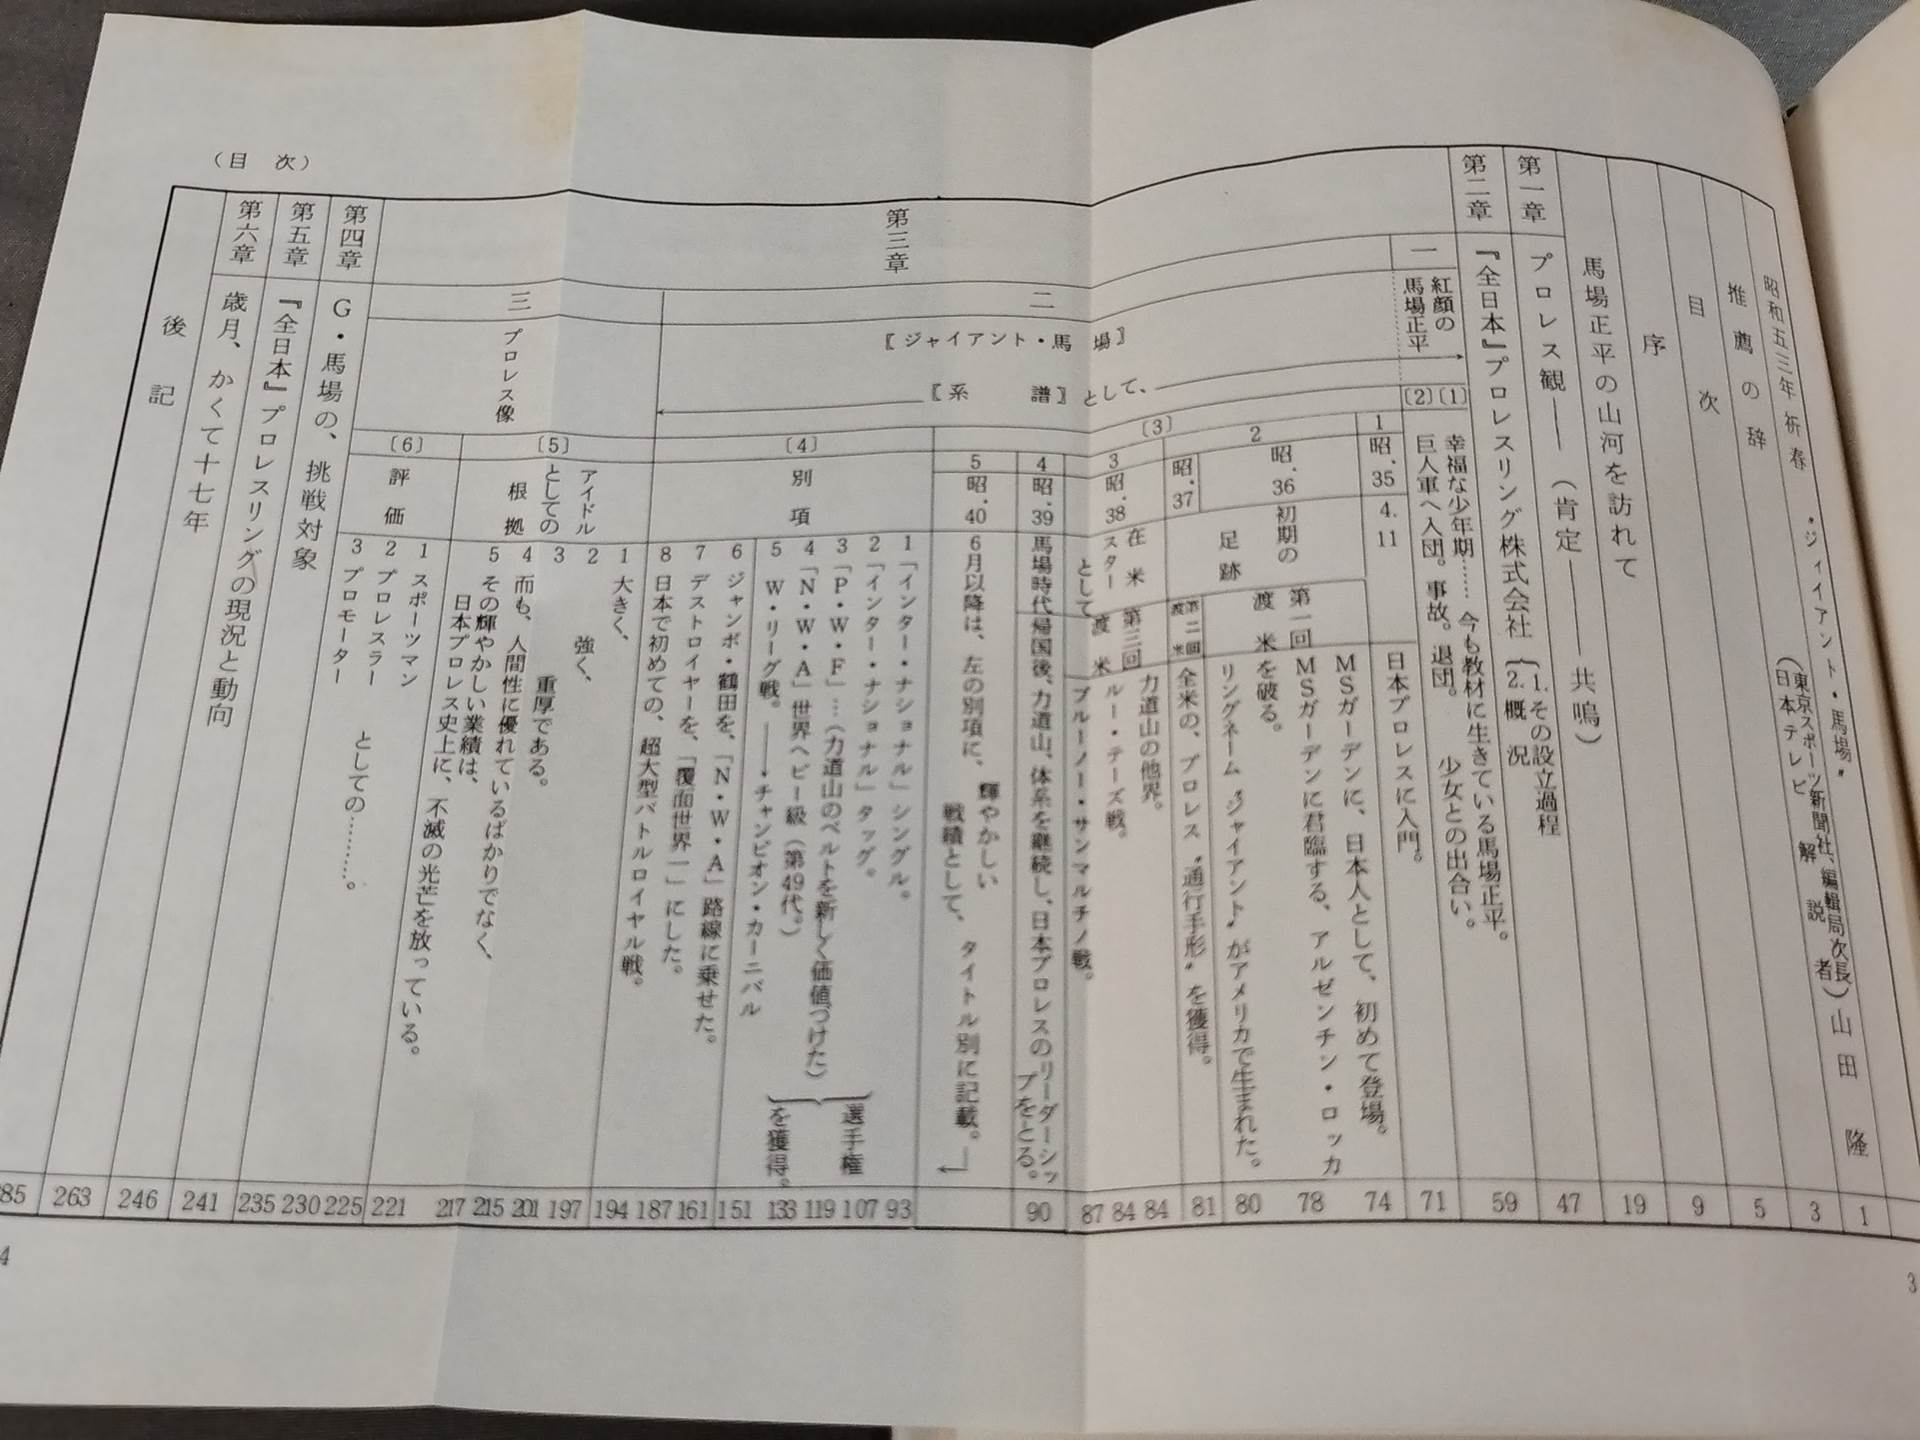 昭和五三年 祈春
〝ジャイアント・馬場〟
推薦の辞
(東京スポーツ新聞社、編輯局次長
日本テレビ 解説者)山田 隆
目次
序
馬場正平の山河を訪れて
第一章 プロレス観――(肯定――共鳴)
第二章 『全日本』プロレスリング株式会社{1.その設立過程
2.概況
第三章
一 紅顔の
馬場正平
〔1〕幸福な少年期……今も教材に生きている馬場正平。
〔2〕巨人軍へ入団。事故。退団。 少女との出合い。
二 〖ジャイアント・馬場〗
〖系譜〗として、
〔3〕
1 昭.35 4.11 日本プロレスに入門。
2 昭.36 初期の
足跡
第一回
渡米
MSガーデンに、日本人として、初めて登場。
MSガーデンに君臨する、アルゼンチン・ロッカ
を破る。
リングネーム〝ジャイアント〟がアメリカで生まれた。
昭.37 第二回
渡米 全米の、プロレス〝通行手形〟を獲得。
3 昭.38 在米
スター
として
第三回
渡米
力道山の他界。
ルー・テーズ戦。
ブルーノー・サンマルチノ戦。
4 昭.39 馬場時代 帰国後、力道山、体系を継続し、日本プロレスのリーダーシッ
プをとる。
5 昭.40 6月以降は、左の別項に、輝やかしい
戦績として、タイトル別に記載。
〔4〕別項
1 「インター・ナショナル」シングル。
2 「インター・ナショナル」タッグ。
3 「P・W・F」…(力道山のベルトを新しく価値づけた)
4 「N・W・A」世界ヘビー級(第49代。)
選手権
を獲得。
5 W・リーグ戦。――・チャンピオン・カーニバル
6 ジャンボ・鶴田を、「N・W・A」路線に乗せた。
7 デストロイヤーを、「覆面世界一」にした。
8 日本で初めての、超大型バトルロイヤル戦。
三 プロレス像
〔5〕アイドル
としての
根拠
1 大きく、
2 強く、
3 重厚である。
4 而も、人間性に優れているばかりでなく、
5 その輝やかしい業績は、
日本プロレス史上に、不滅の光芒を放っている。
〔6〕評価
1 スポーツマン
2 プロレスラー
3 プロモーター
としての………。
第四章 G・馬場の、挑戦対象
第五章 『全日本』プロレスリングの現況と動向
第六章 歳月、かくて十七年
後記
(目次)
1
3
5
9
19
47
59
71
74
78
80
81
84
84
87
90
93
107
119
133
151
161
187
194
197
201
215
217
221
225
230
235
241
246
263
85
3
4